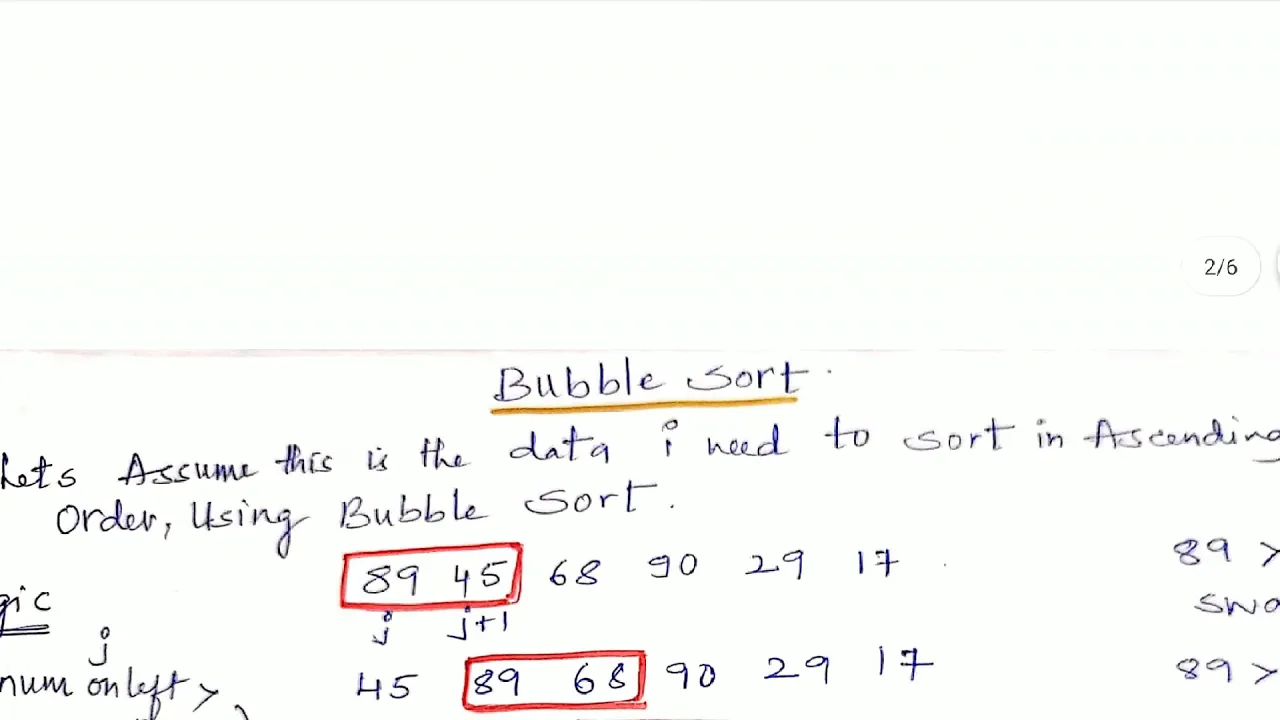 2/6
Bubble Sort
Lets Assume this is the data i need to sort in Ascending
Order, Using Bubble Sort.
89 45 68 90 29 17
89 >
j j+1
swa
gic
j
45 89 68 90 29 17
89 >
num on left >